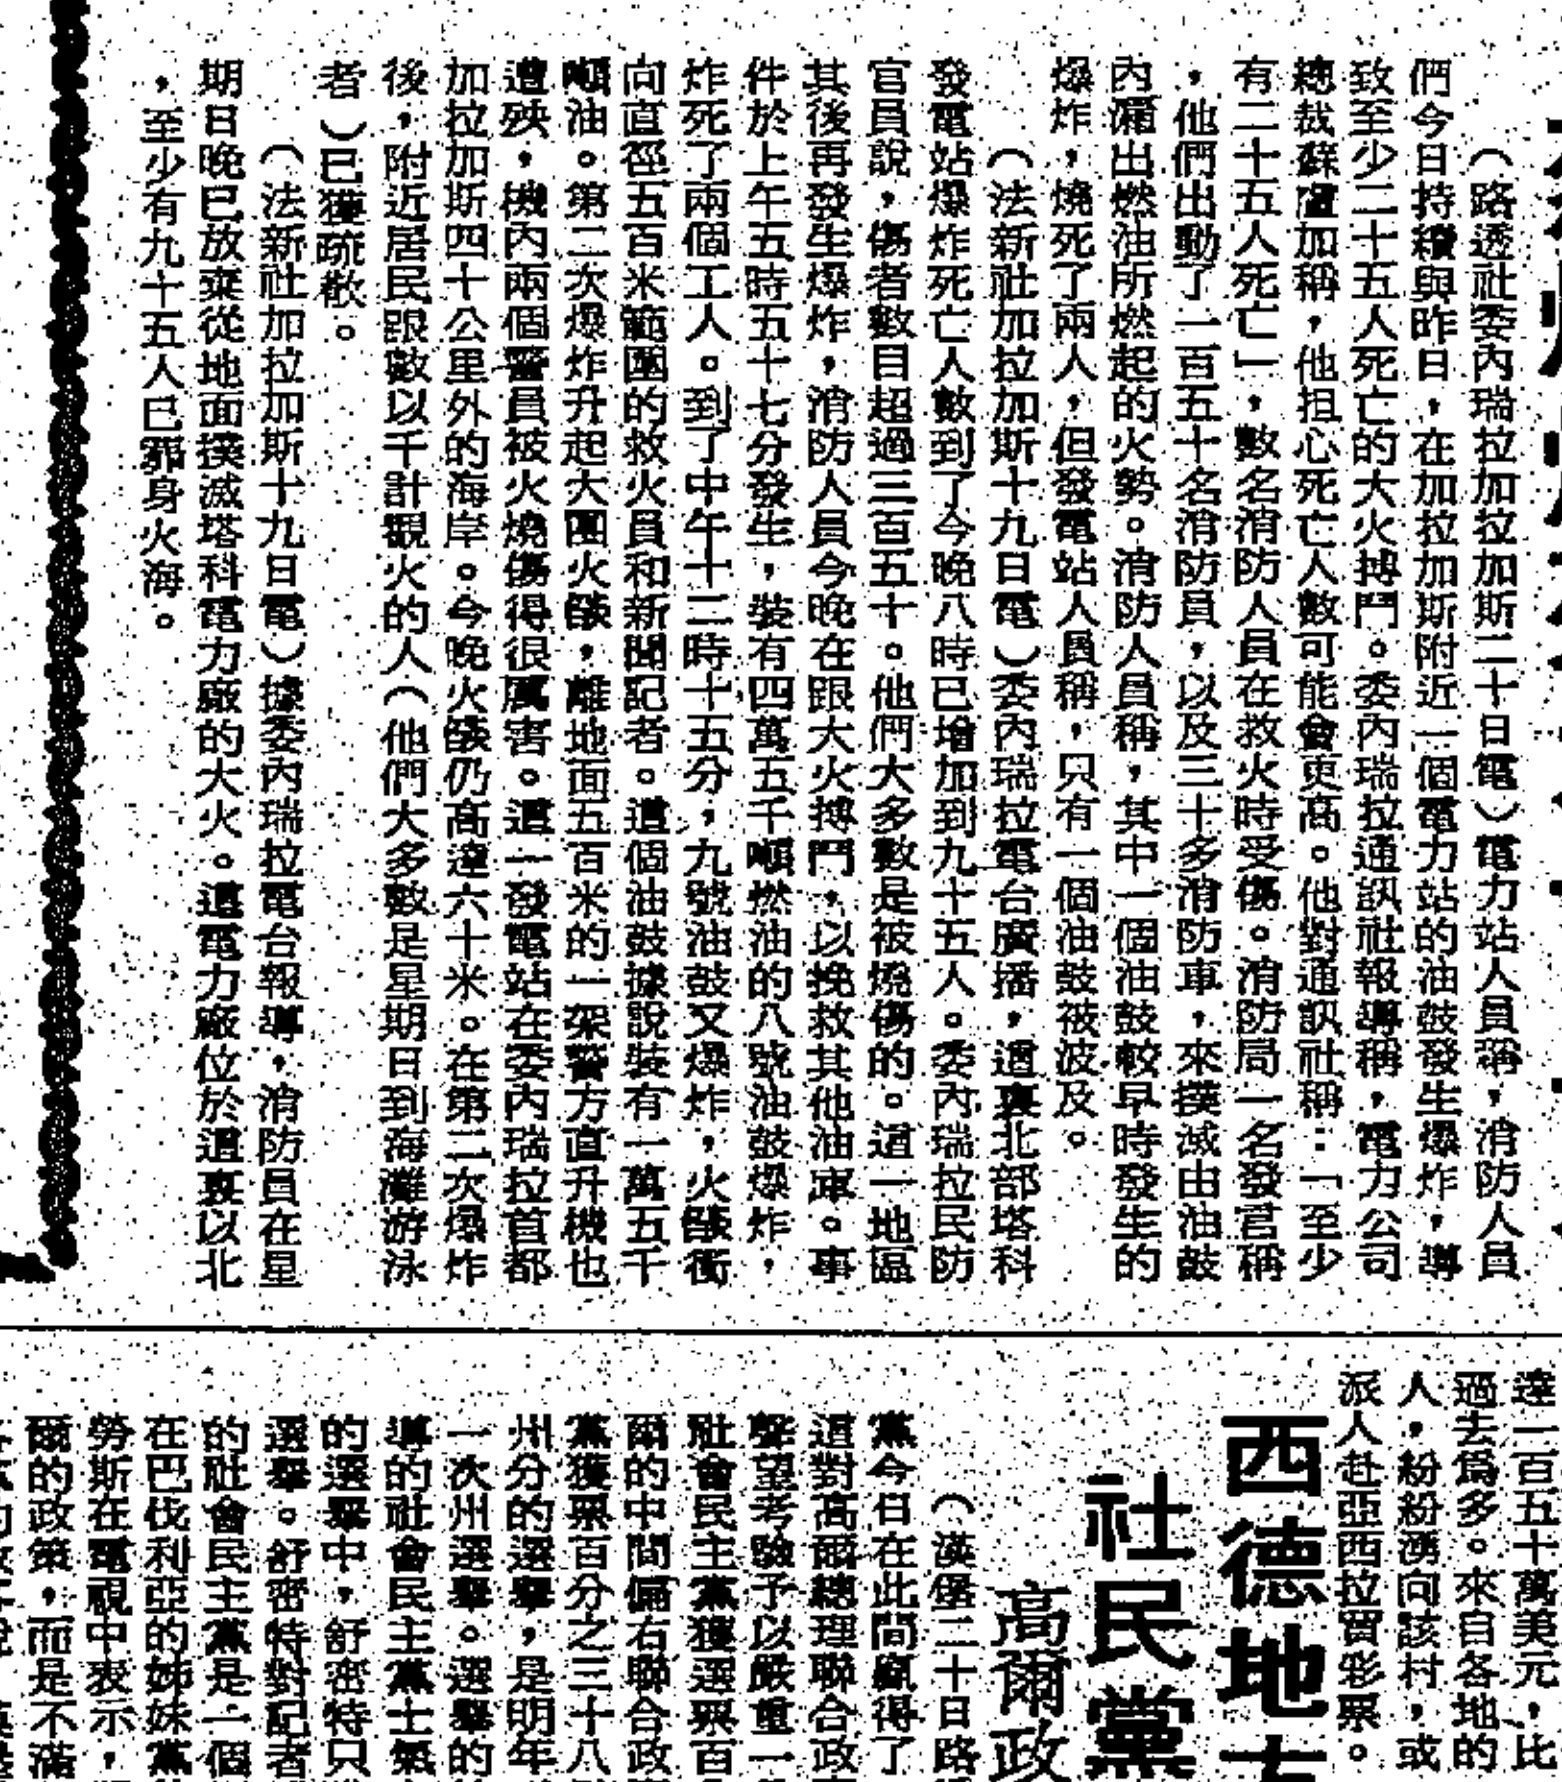 （路透社委內瑞拉加拉加斯二十日電）電力站人員稱，消防人員
們今日持續與昨日，在加拉加斯附近一個電力站的油鼓發生爆炸，導
致至少二十五人死亡的大火搏鬥。委內瑞拉通訊社報導稱，電力公司
總裁蘇盧加稱，他担心死亡人數可能會更高。他對通訊社稱：「至少
有二十五人死亡」，數名消防人員在救火時受傷。消防局一名發言稱
，他們出動了一百五十名消防員，以及三十多消防車，來撲滅由油鼓
內漏出燃油所燃起的火勢。消防人員稱，其中一個油鼓較早時發生的
爆炸，燒死了兩人，但發電站人員稱，只有一個油鼓被波及。
（法新社加拉加斯十九日電）委內瑞拉電台廣播，這裏北部塔科
發電站爆炸死亡人數到了今晚八時已增加到九十五人。委內瑞拉民防
官員說，傷者數目超過三百五十。他們大多數是被燒傷的。這一地區
其後再發生爆炸，消防人員今晚在跟大火搏鬥，以挽救其他油庫。事
件於上午五時五十七分發生，裝有四萬五千噸燃油的八號油鼓爆炸，
炸死了兩個工人。到了中午十二時十五分，九號油鼓又爆炸，火燄衝
向直徑五百米範圍的救火員和新聞記者。這個油鼓據說裝有一萬五千
噸油。第二次爆炸升起大團火燄，離地面五百米的一架警方直升機也
遭殃，機內兩個警員被火燒傷得很厲害。這一發電站在委內瑞拉首都
加拉加斯四十公里外的海岸。今晚火燄仍高達六十米。在第二次爆炸
後，附近居民跟數以千計觀火的人（他們大多數是星期日到海灘游泳
者）已獲疏散。
（法新社加拉加斯十九日電）據委內瑞拉電台報導，消防員在星
期日晚已放棄從地面撲滅塔科電力廠的大火。這電力廠位於這裏以北
，至少有九十五人已葬身火海。
達一百五十萬美元，比
過去爲多。來自各地的
人，紛紛湧向該村，或
派人赴亞西拉買彩票。
西德地
社民黨
高爾政
（漢堡二十日路
黨今日在此間贏得了
這對高爾總理聯合政
聲望考驗予以嚴重一
社會民主黨獲選票百
爾的中間偏右聯合政
黨獲票百分之三十八
州分的選舉，是明年
一次州選舉。選舉的
導的社會民主黨士氣
的選舉中，舒密特只
選舉。舒密特對記者
的社會民主黨是一個
在巴伐利亞的姊妹黨
勞斯在電視中表示，
爾的政策，而是不滿